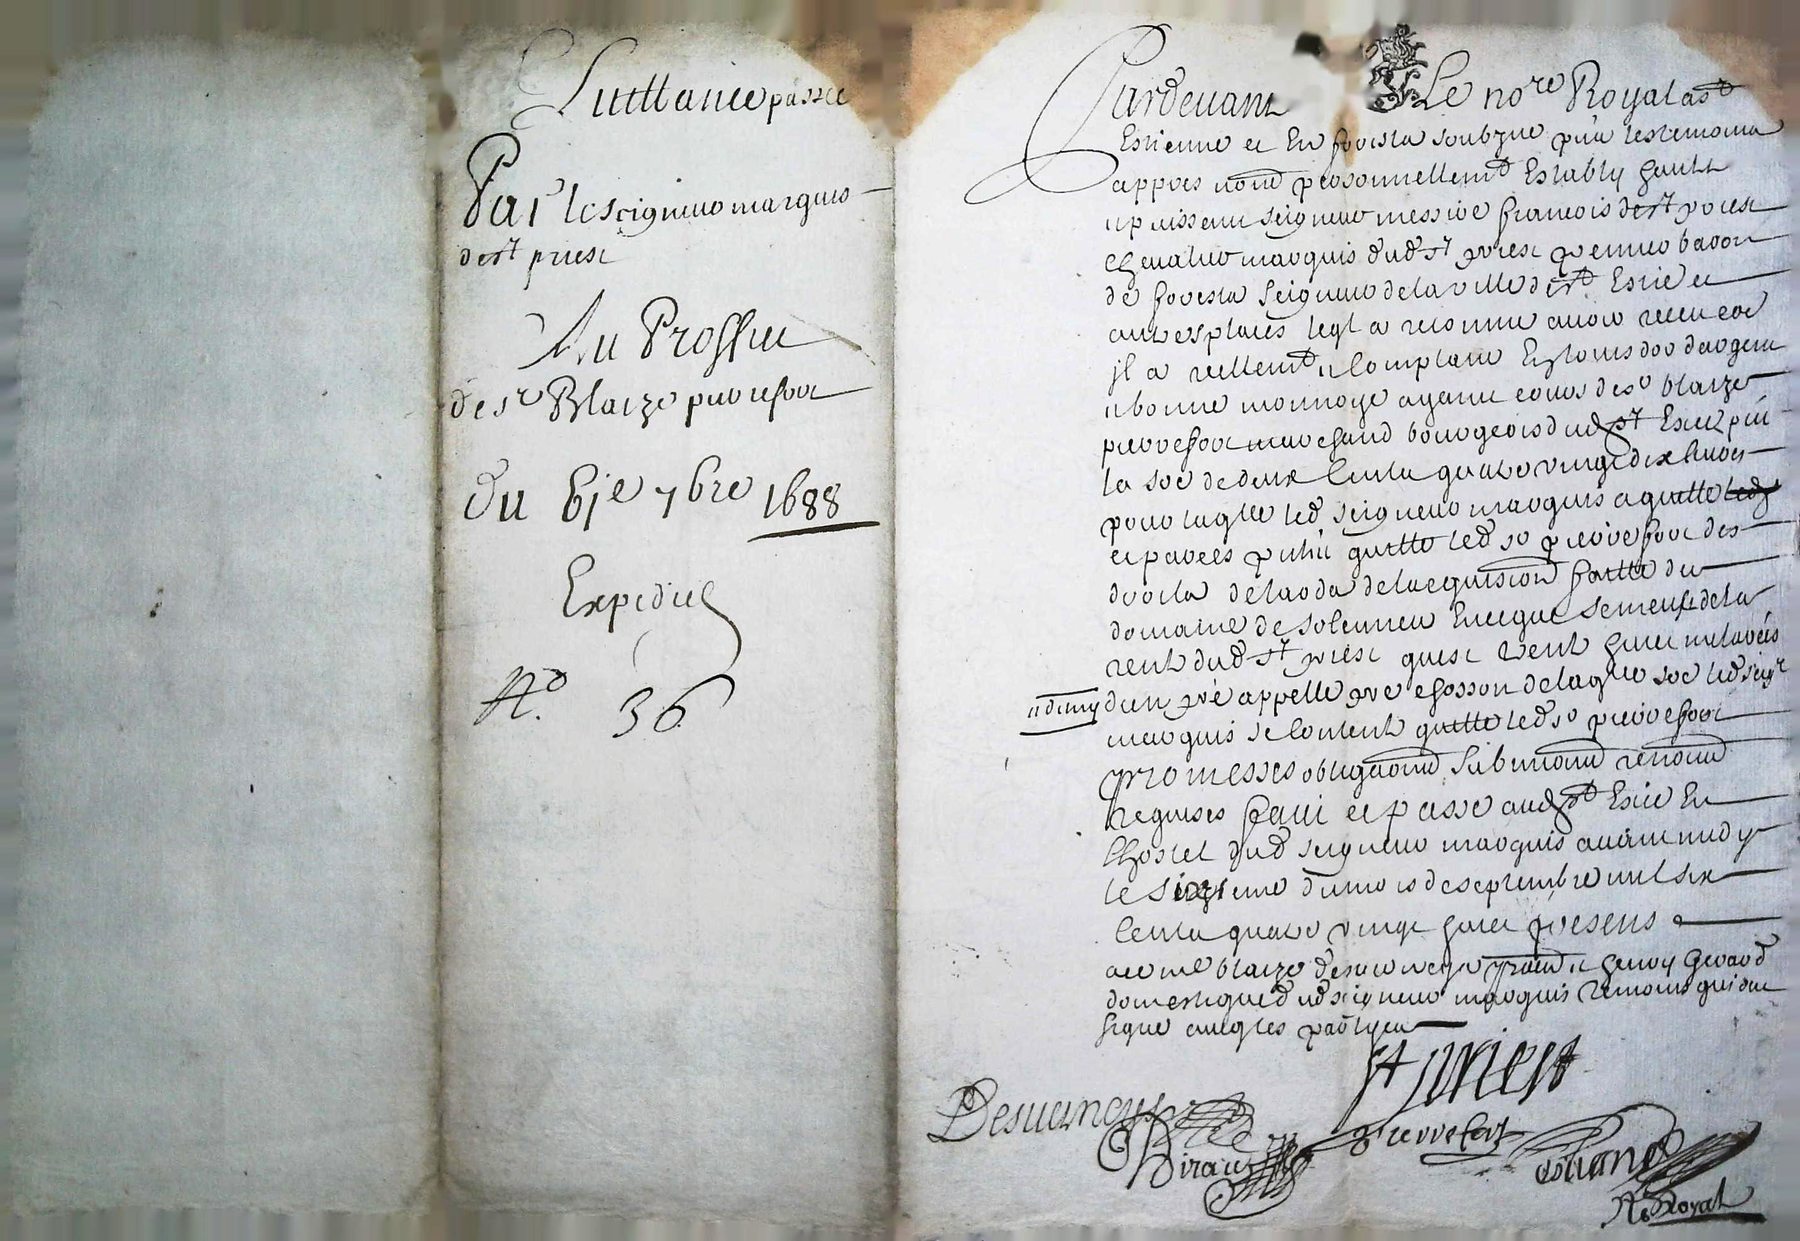 Quittance passée
Par le seigneur marquis
de st priest
Au Proffit
de sr Blaize pierrefort
du 6ie 7bre 1688
Expediee
No. 36
Pardevant Le nore Royal a st
Estienne et En forestz soubzne puis les temoins
appres nom personnellemt Establi hault
& puissant seigneur messire francois de st priest
chevalier marquis dud st priest premier baron
de forestz seigneur de la ville de st Estie et
autres places leql a reconnu avoir receu
il a reellemt & comptant En louis dor dargent
& bonne monnoye ayant cours de sr blaize
pierrefort marchand bourgeois dud st Estie
la soe de deux Centz quatre vingt dix livres
pour laqlle led seigneur marquis a quitté
et par ces quitte led sr pierrefort des
droitz de lacquision faitte du
domaine de soleimieu de la
rente dud st priest
& dimy dun pré appellé pré chosson de laqlle soe led seigr
marquis se Content quitte led sr pierrefort
promesses obligaons submions renons
Requises fait et passé aud st Estie En
lhostel dud seigneur marquis avant midy
le sixiesme du mois de septembre mil six
Centz quatre vingt huict presens
me blaize desverneys & henry Giraud
domestique dud seigneur marquis temoins qui ont
signe avec les parties
st priest
Desverneys
Giraud
pierrefort
No Royal